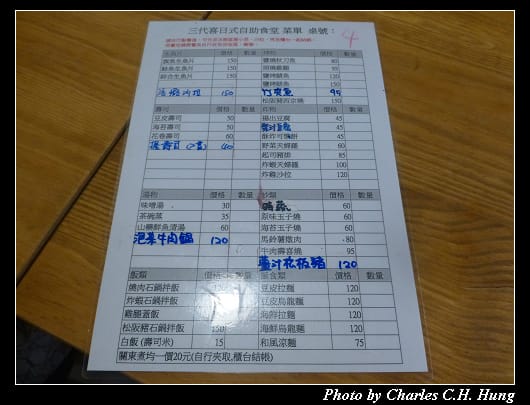 三代喜日式自助食堂 菜單 桌號：4
價格 數量
鮭魚生魚片 150
鮮魚生魚片 150
綜合生魚片 150
150
鹽燒秋刀魚 80
鹽烤
120
150
松阪豬西京燒 150
竹莢魚 95
壽司 價格 數量
豆皮壽司 50
海苔壽司 50
花卷壽司 60
40
炸物 價格 數量
揚出豆腐 45
45
酥炸可樂餅 45
野菜天婦羅 60
起司豬排 85
炸蝦天婦羅 100
炸蝦沙拉 120
湯物 價格 數量
味噌湯 30
茶碗蒸 35
山藥鮮魚清湯 60
泡菜牛肉鍋 120
價格 數量
時蔬 60
原味玉子燒 60
海苔玉子燒 60
馬鈴薯燉肉 80
牛肉壽喜燒 95
薑汁松板豬 120
飯類 價格 數量
燒肉石鍋拌飯 120
炸蝦石鍋拌飯
雞腿蓋飯
松阪豬石鍋拌飯 150
白飯 (壽司米) 15
麵食類 價格 數量
豆皮拉麵 120
豆皮烏龍麵 120
海鮮拉麵 120
海鮮烏龍麵 120
和風涼麵 75
關東煮均一價20元(自行夾取,櫃台結帳)
Photo by Charles C.H. Hung